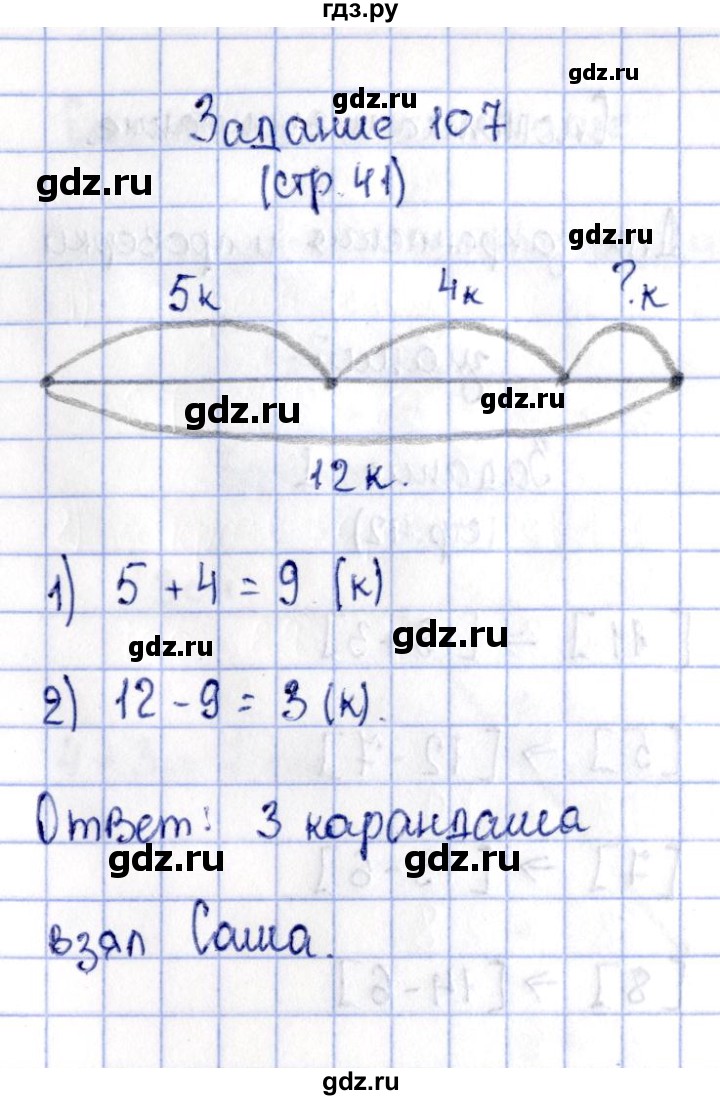 гдз.ру
gdz.ru
gdz.ru
Задание 107
gdz.ru
(стр. 41)
gdz.ru
5к 4к ?к
gdz.ru
gdz.ru
12к.
1) 5 + 4 = 9 (к)
gdz.ru
gdz.ru
2) 12 - 9 = 3 (к).
Ответ: 3 карандаша
gdz.ru
gdz.ru
взял Саша.
gdz.ru